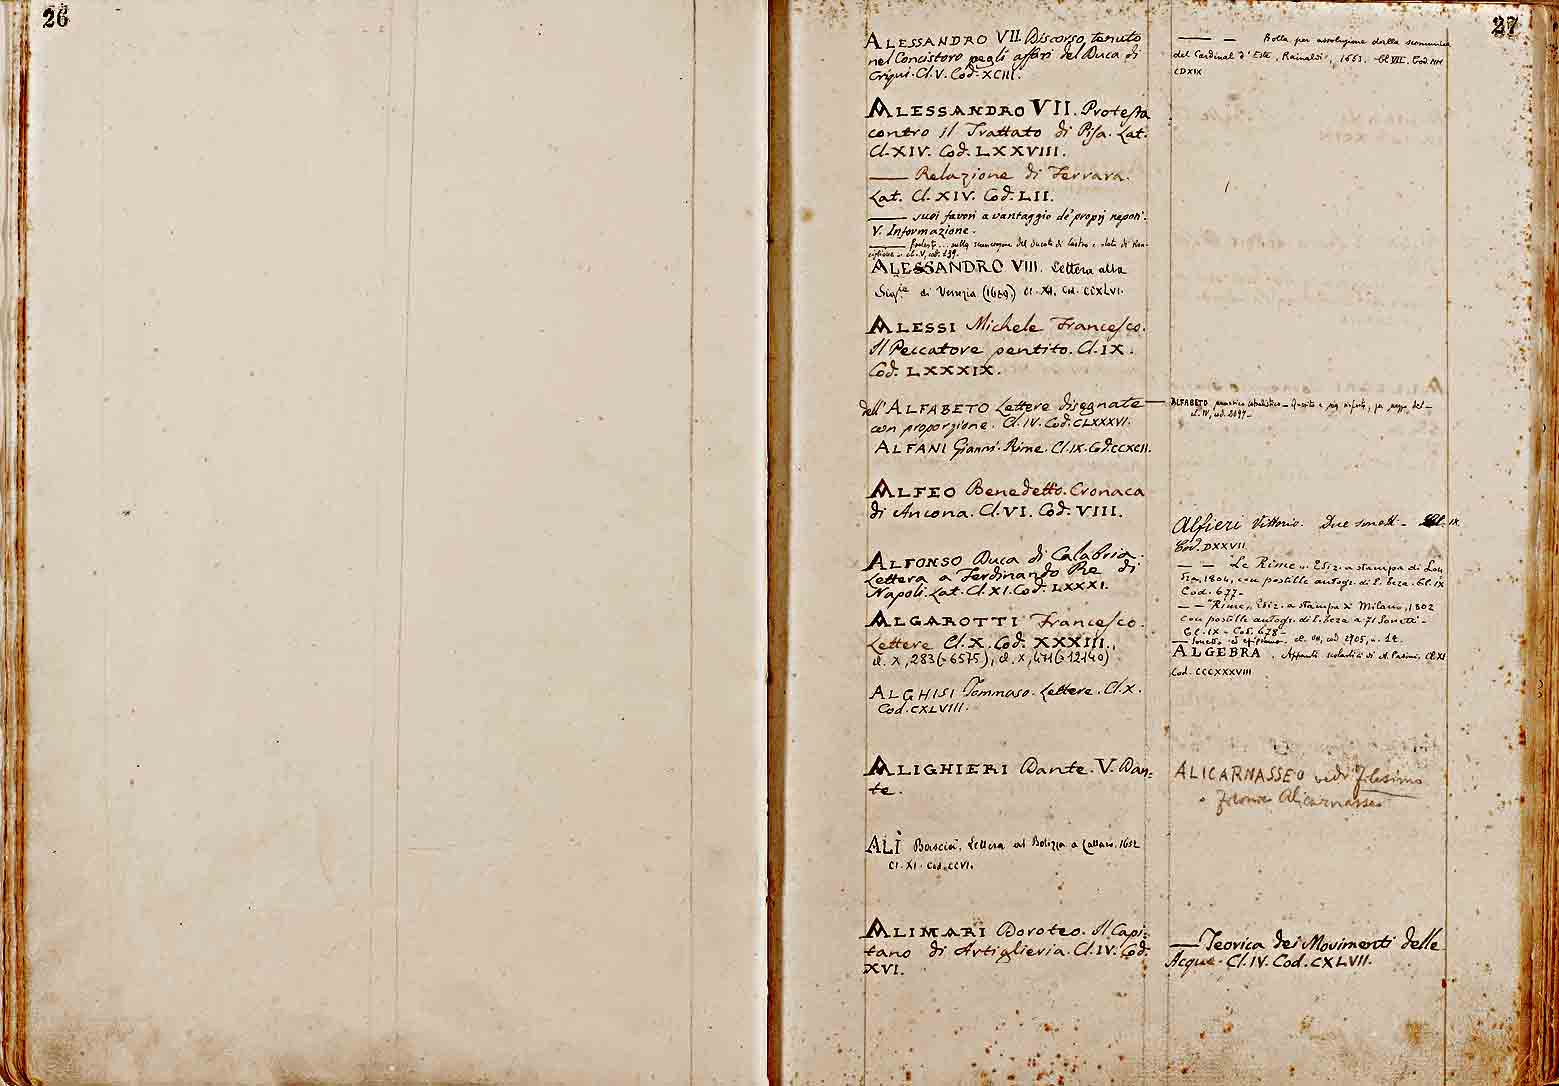 26
27
ALESSANDRO VII. Discorso tenuto
nel Concistoro pegli affari del Duca di
Criqui. Cl. V. Cod. XCIII.
ALESSANDRO VII. Protesta
contro il Trattato di Pisa. Lat.
Cl. XIV. Cod. LXXVIII.
—— Relazione di Ferrara.
Lat. Cl. XIV. Cod. LII.
—— suoi favori a vantaggio de' proprj nepoti.
V. Informazione.
—— sulla del Ducato di Castro e stato di Ron-
ciglione - cl. V, cod. 139.
ALESSANDRO VIII. Lettera alla
Sig.ria di Venezia (1689.) Cl. XI. Cod. CCXLVI.
ALESSI Michele Francesco.
Il Peccatore pentito. Cl. IX.
Cod. LXXXIX.
dell'ALFABETO Lettere disegnate
con proporzione. Cl. IV. Cod. CLXXXVI.
ALFANI Gianni. Rime. Cl. IX. Cod. CCXCII.
ALFEO Benedetto. Cronaca
di Ancona. Cl. VI. Cod. VIII.
ALFONSO Duca di Calabria.
Lettera a Ferdinando Re di
Napoli. Lat. Cl. XI. Cod. LXXXI.
ALGAROTTI Francesco.
Lettere Cl. X. Cod. XXXIII.,
cl. X, 283 (=6575), cl. X, 471 (=12140)
ALGHISI Tommaso. Lettere. Cl. X.
Cod. CXLVIII.
ALIGHIERI Dante. V. Dan=
te.
ALÌ Bascià. Lettera al Bolizza a Cattaro. 1652
Cl. XI. Cod. CCVI.
ALIMARI Doroteo. Il Capi=
tano di Artiglieria. Cl. IV. Cod.
XVI.
—— — Bolla per assoluzione dalla scomunica
del Cardinal d'Este, Rainaldo, 1663. Cl. VII. Cod. MM
CDXIX
ALFABETO cabalistico —
cl. IV, cod.
Alfieri Vittorio. Due sonetti — Cl. IX
Cod. DXXVII
— — Le Rime. Ediz. a stampa di Lon
dra, 1804, con postille autogr. di E. Teza. Cl. IX
Cod. 677 -
— — Rime. Ediz. a stampa Milano, 1802
con postille autogr. di E. Teza a 71 Sonetti -
Cl. IX - Cod. 678 -
— Sonetto ed epigramma. cl. cod. 2905, n. 12.
ALGEBRA. Appunti scolastici di A. Pasini, Cl. XI
Cod. CCCXXXVIII
ALICARNASSEO vedi
Alicarnasseo
—— Teorica dei Movimenti delle
Acque. Cl. IV. Cod. CXLVII.